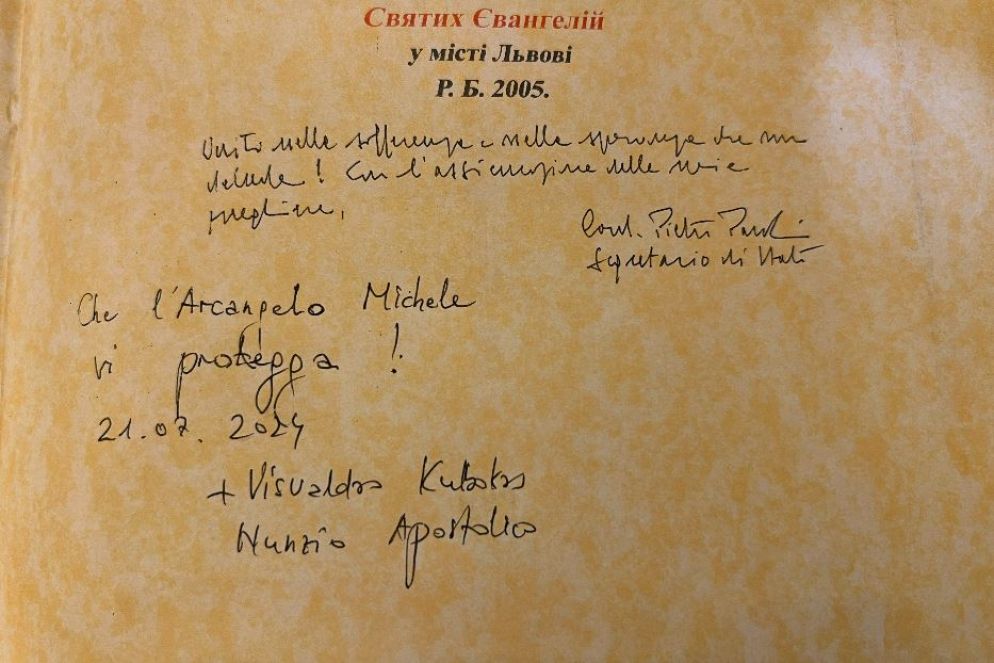 Святих Євангелій
у місті Львові
Р. Б. 2005.
Unito nella sofferenza e nella speranza che non
delude! Con l'assicurazione delle mie
preghiere,
Card. Pietro Parolin
Segretario di Stato
Che l'Arcangelo Michele
vi protegga!
21.07.2024
+ Visvaldas Kulbokas
Nunzio Apostolico